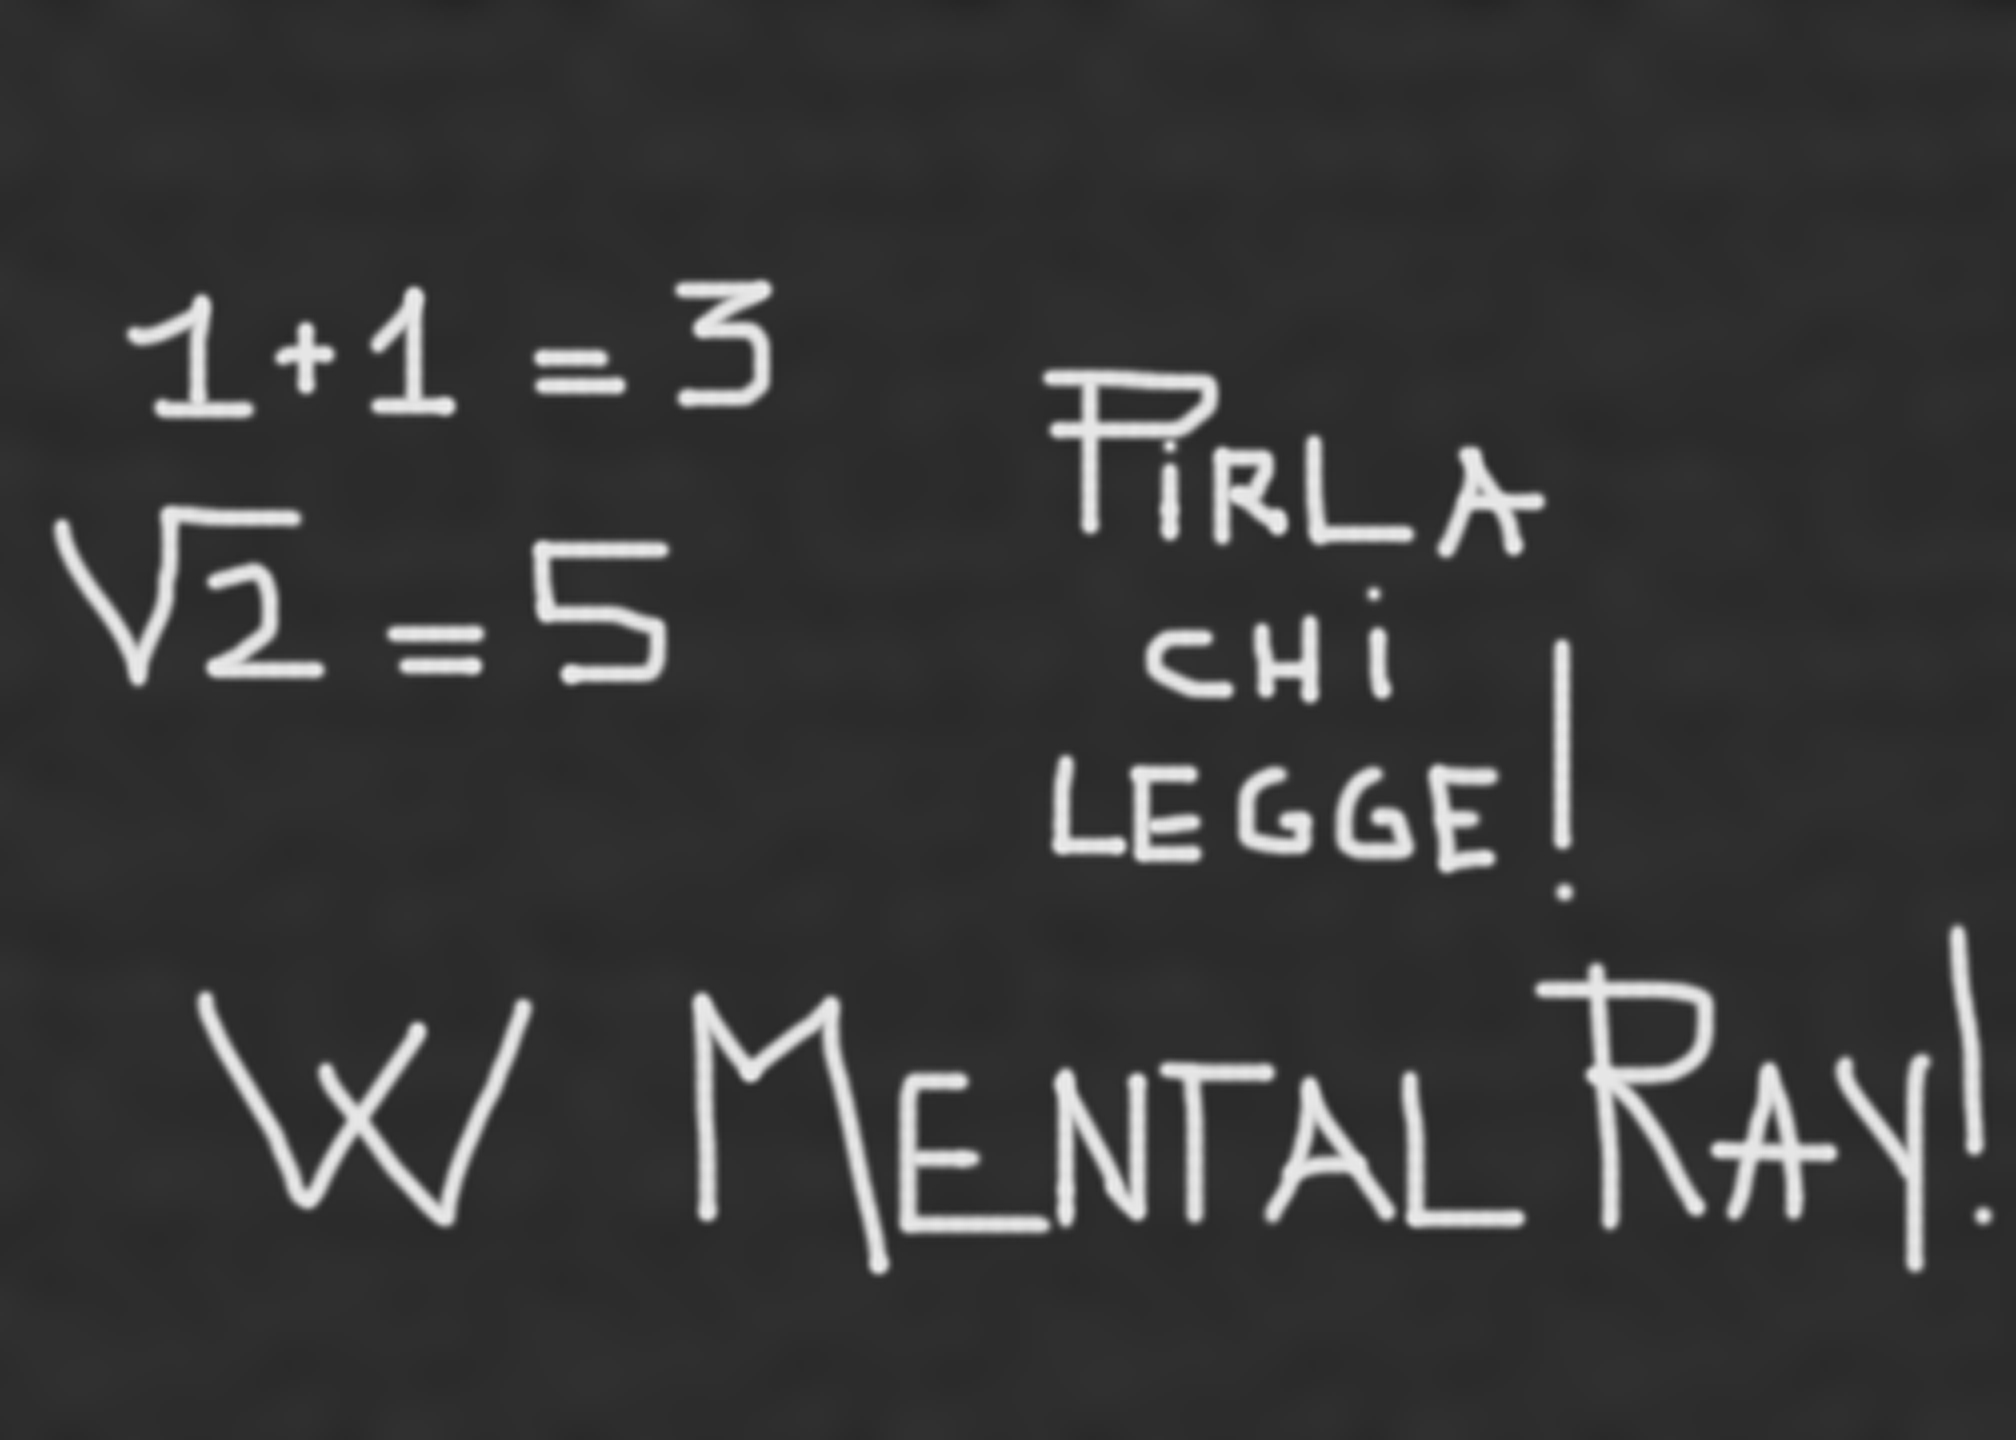 1+1=3
√2=5
PiRLA
CHi
LEGGE!
W MENTAL RAY!